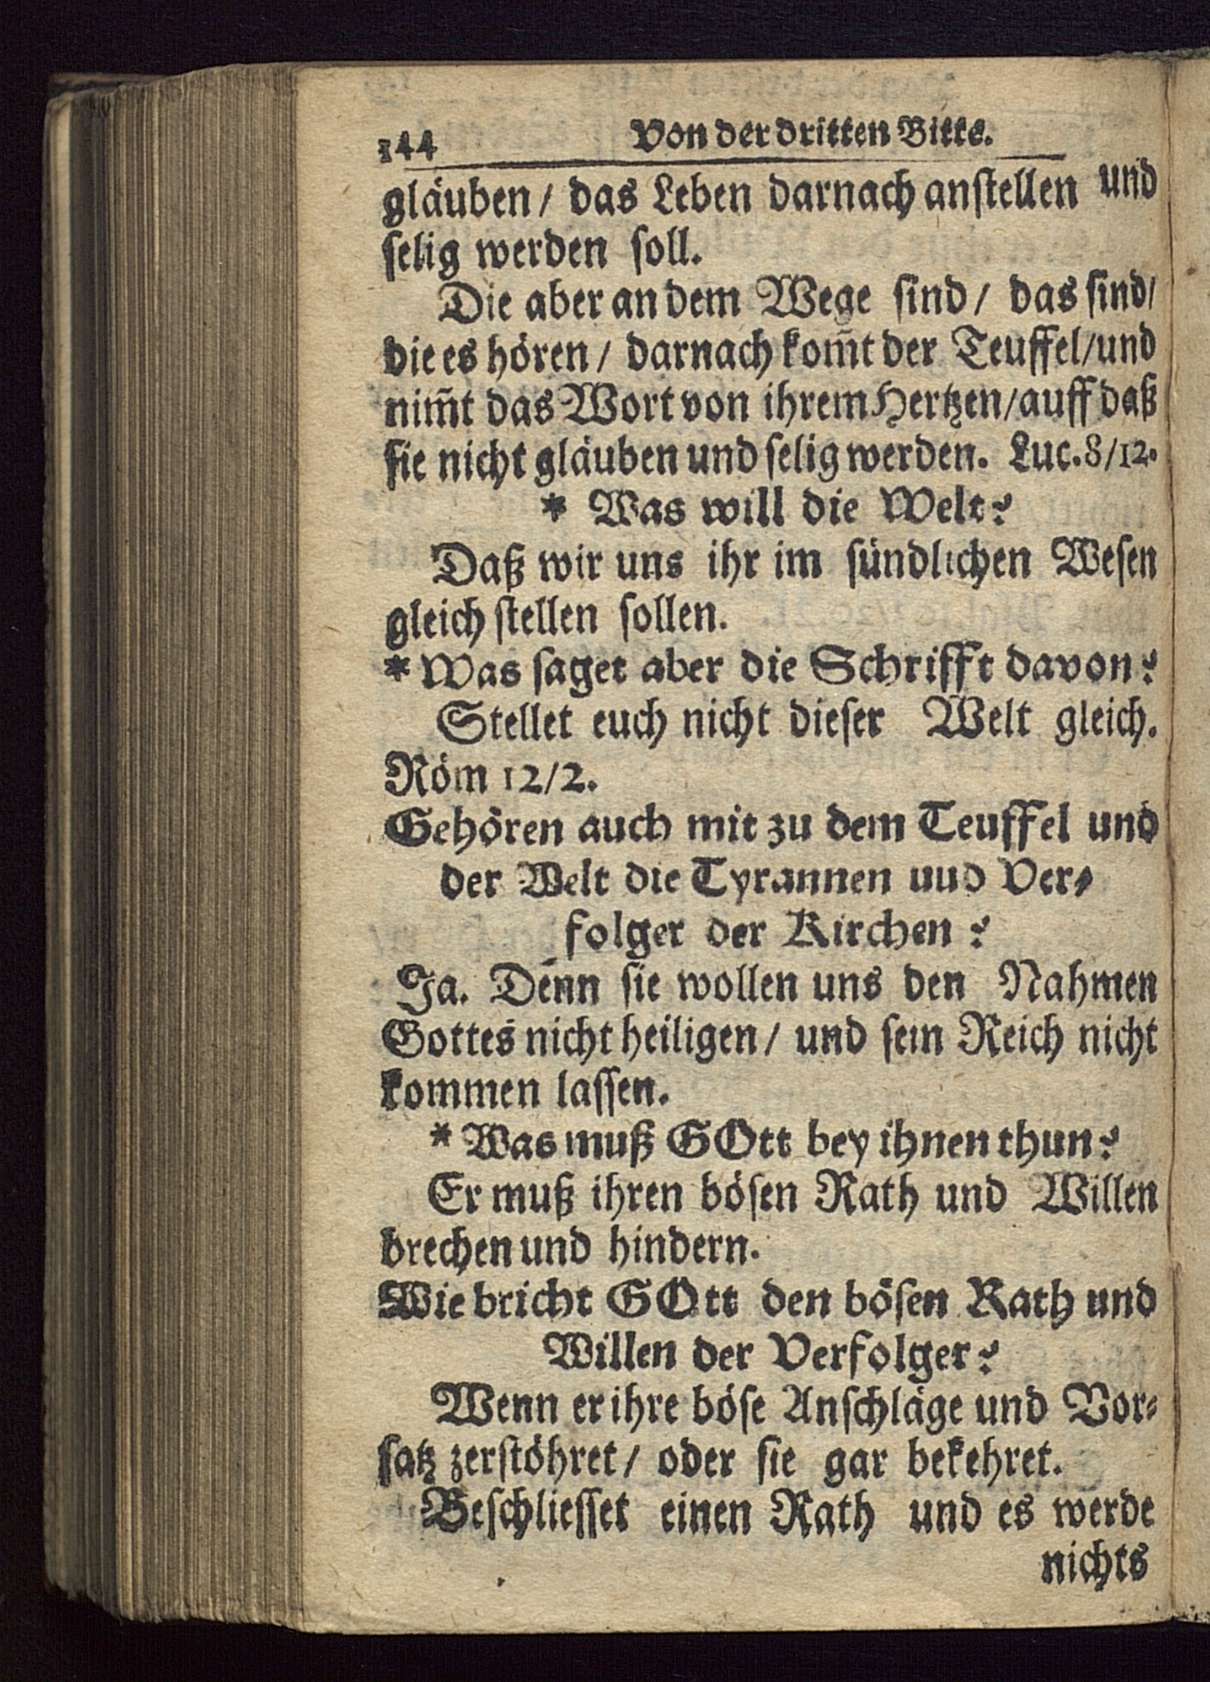 144 Von der dritten Bitte.
gläuben / das Leben darnach anstellen und
selig werden soll.
Die aber an dem Wege sind / das sind/
die es hören / darnach kom̃t der Teuffel/und
nim̃t das Wort von ihrem Hertzen/auff daß
sie nicht gläuben und selig werden. Luc.8/12.
* Was will die Welt?
Daß wir uns ihr im sündlichen Wesen
gleich stellen sollen.
* Was saget aber die Schrifft davon?
Stellet euch nicht dieser Welt gleich.
Röm 12/2.
Gehören auch mit zu dem Teuffel und
der Welt die Tyrannen uud Ver-
folger der Kirchen ?
Ja. Denn sie wollen uns den Nahmen
Gottes nicht heiligen / und sein Reich nicht
kommen lassen.
* Was muß GOtt bey ihnen thun?
Er muß ihren bösen Rath und Willen
brechen und hindern.
Wie bricht GOtt den bösen Rath und
Willen der Verfolger?
Wenn er ihre böse Anschläge und Vor-
satz zerstöhret / oder sie gar bekehret.
Beschliesset einen Rath und es werde
nichts